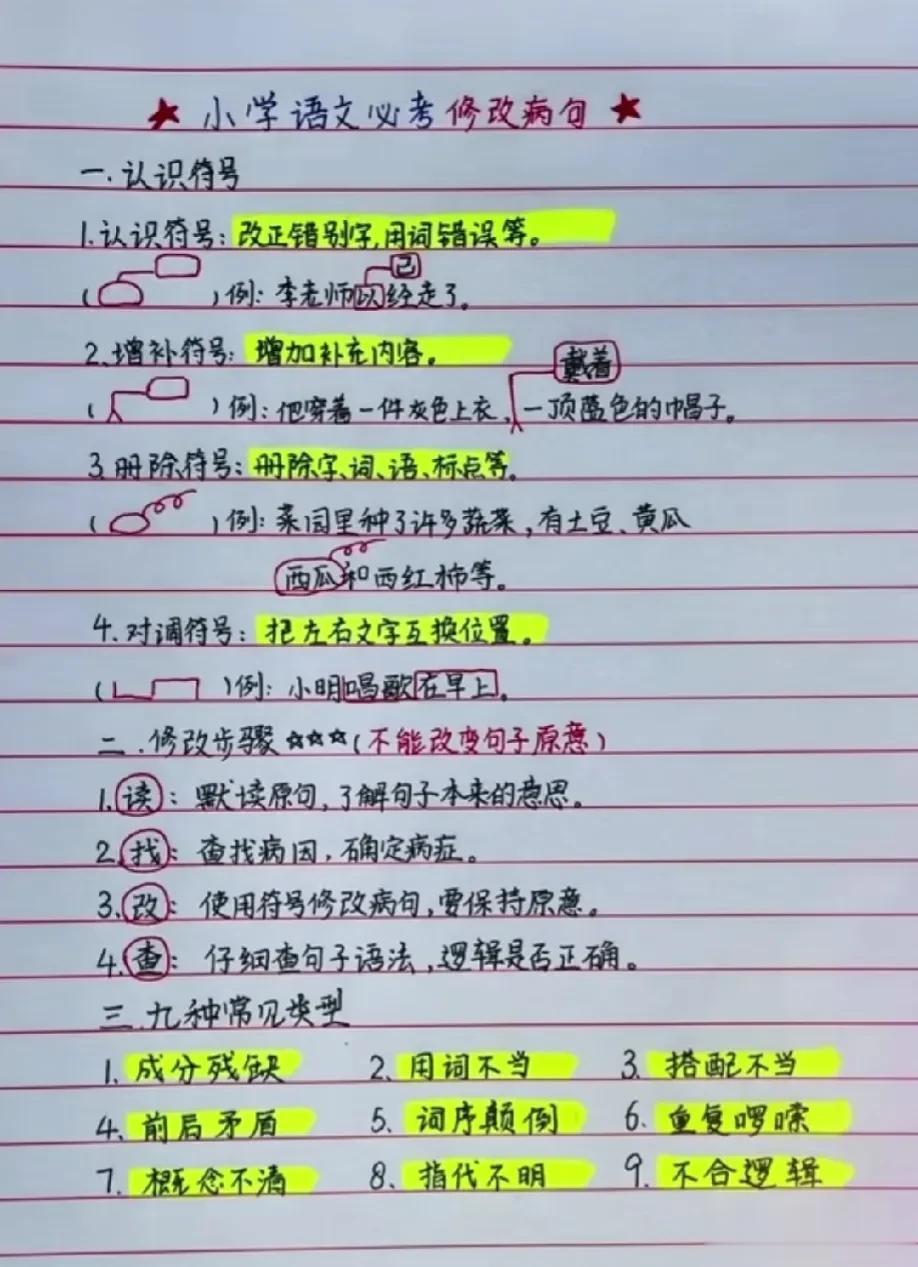 ★ 小学语文必考修改病句 ★
一.认识符号
1.认识符号:改正错别字,用词错误等。
( )例:李老师以经走了。
已
2.增补符号:增加补充内容。
戴着
( )例:他穿着一件灰色上衣,一顶蓝色的帽子。
3.删除符号:删除字、词、语、标点等。
( )例:菜园里种了许多蔬菜,有土豆、黄瓜
西瓜和西红柿等。
4.对调符号:把左右文字互换位置。
( )例:小明唱歌在早上。
二.修改步骤☆☆☆(不能改变句子原意)
1.读:默读原句,了解句子本来的意思。
2.找:查找病因,确定病症。
3.改:使用符号修改病句,要保持原意。
4.查:仔细查句子语法,逻辑是否正确。
三.九种常见类型
1.成分残缺 2.用词不当 3.搭配不当
4.前后矛盾 5.词序颠倒 6.重复啰嗦
7.概念不清 8.指代不明 9.不合逻辑